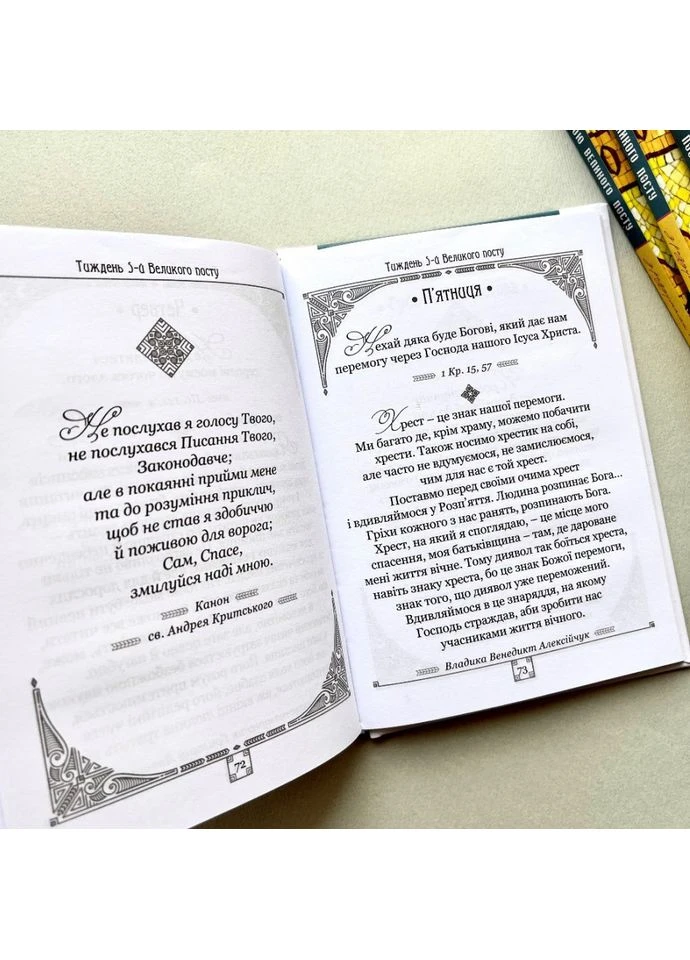 Тиждень 5-й Великого посту
Не послухав я голосу Твого,
не послухався Писання Твого,
Законодавче;
але в покаянні прийми мене
та до розуміння приклич,
щоб не став я здобиччю
й поживою для ворога;
Сам, Спасе,
змилуйся наді мною.
Канон
св. Андрея Критського
72
Тиждень 5-й Великого посту
• П'ятниця •
Нехай дяка буде Богові, який дає нам
перемогу через Господа нашого Ісуса Христа.
1 Кр. 15, 57
Хрест – це знак нашої перемоги.
Ми багато де, крім храму, можемо побачити
хрести. Також носимо хрестик на собі,
але часто не вдумуємося, не замислюємося,
чим для нас є той хрест.
Поставмо перед своїми очима хрест
і вдивляймося у Розп'яття. Людина розпинає Бога...
Гріхи кожного з нас ранять, розпинають Бога.
Хрест, на який я споглядаю, – це місце мого
спасення, моя батьківщина – там, де дароване
мені життя вічне. Тому диявол так боїться хреста,
навіть знаку хреста, бо це знак Божої перемоги,
знак того, що диявол уже переможений.
Вдивляймося в це знаряддя, на якому
Господь страждав, аби зробити нас
учасниками життя вічного.
Владика Венедикт Алексійчук
73
ВЕЛИКОГО ПОСТУ
ВЕЛИКОГО ПОСТУ